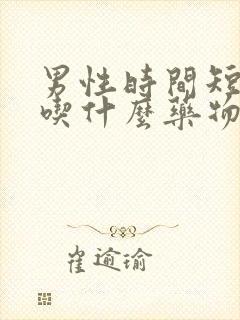 男性時間短
喫什麼藥物
崔逾瑜